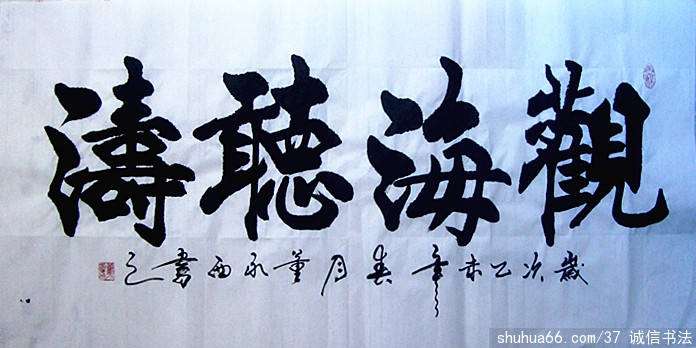 觀海聽濤
歲次乙未年春月董永西書之
shuhua66.com/37 诚信书法